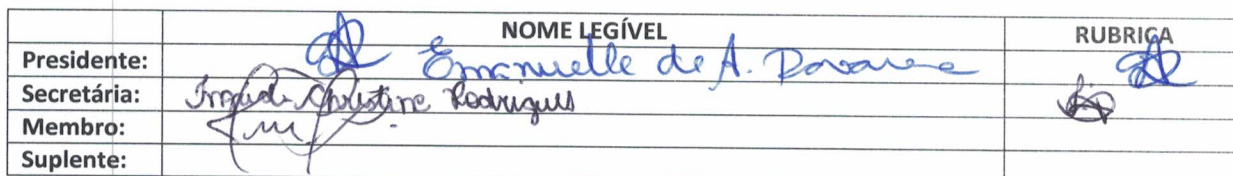 NOME LEGÍVEL RUBRICA
Presidente: Emanuelle de A.
Secretária: Christine Rodrigues
Membro:
Suplente: